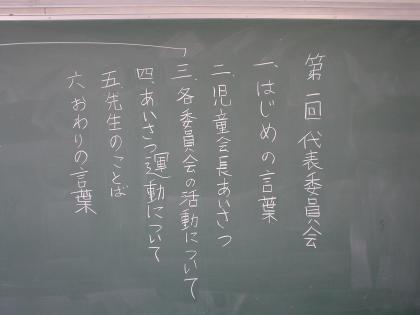 第一回 代表委員会
一、はじめの言葉
二、児童会長あいさつ
三、各委員会の活動について
四、あいさつ運動について
五、先生のことば
六、おわりの言葉